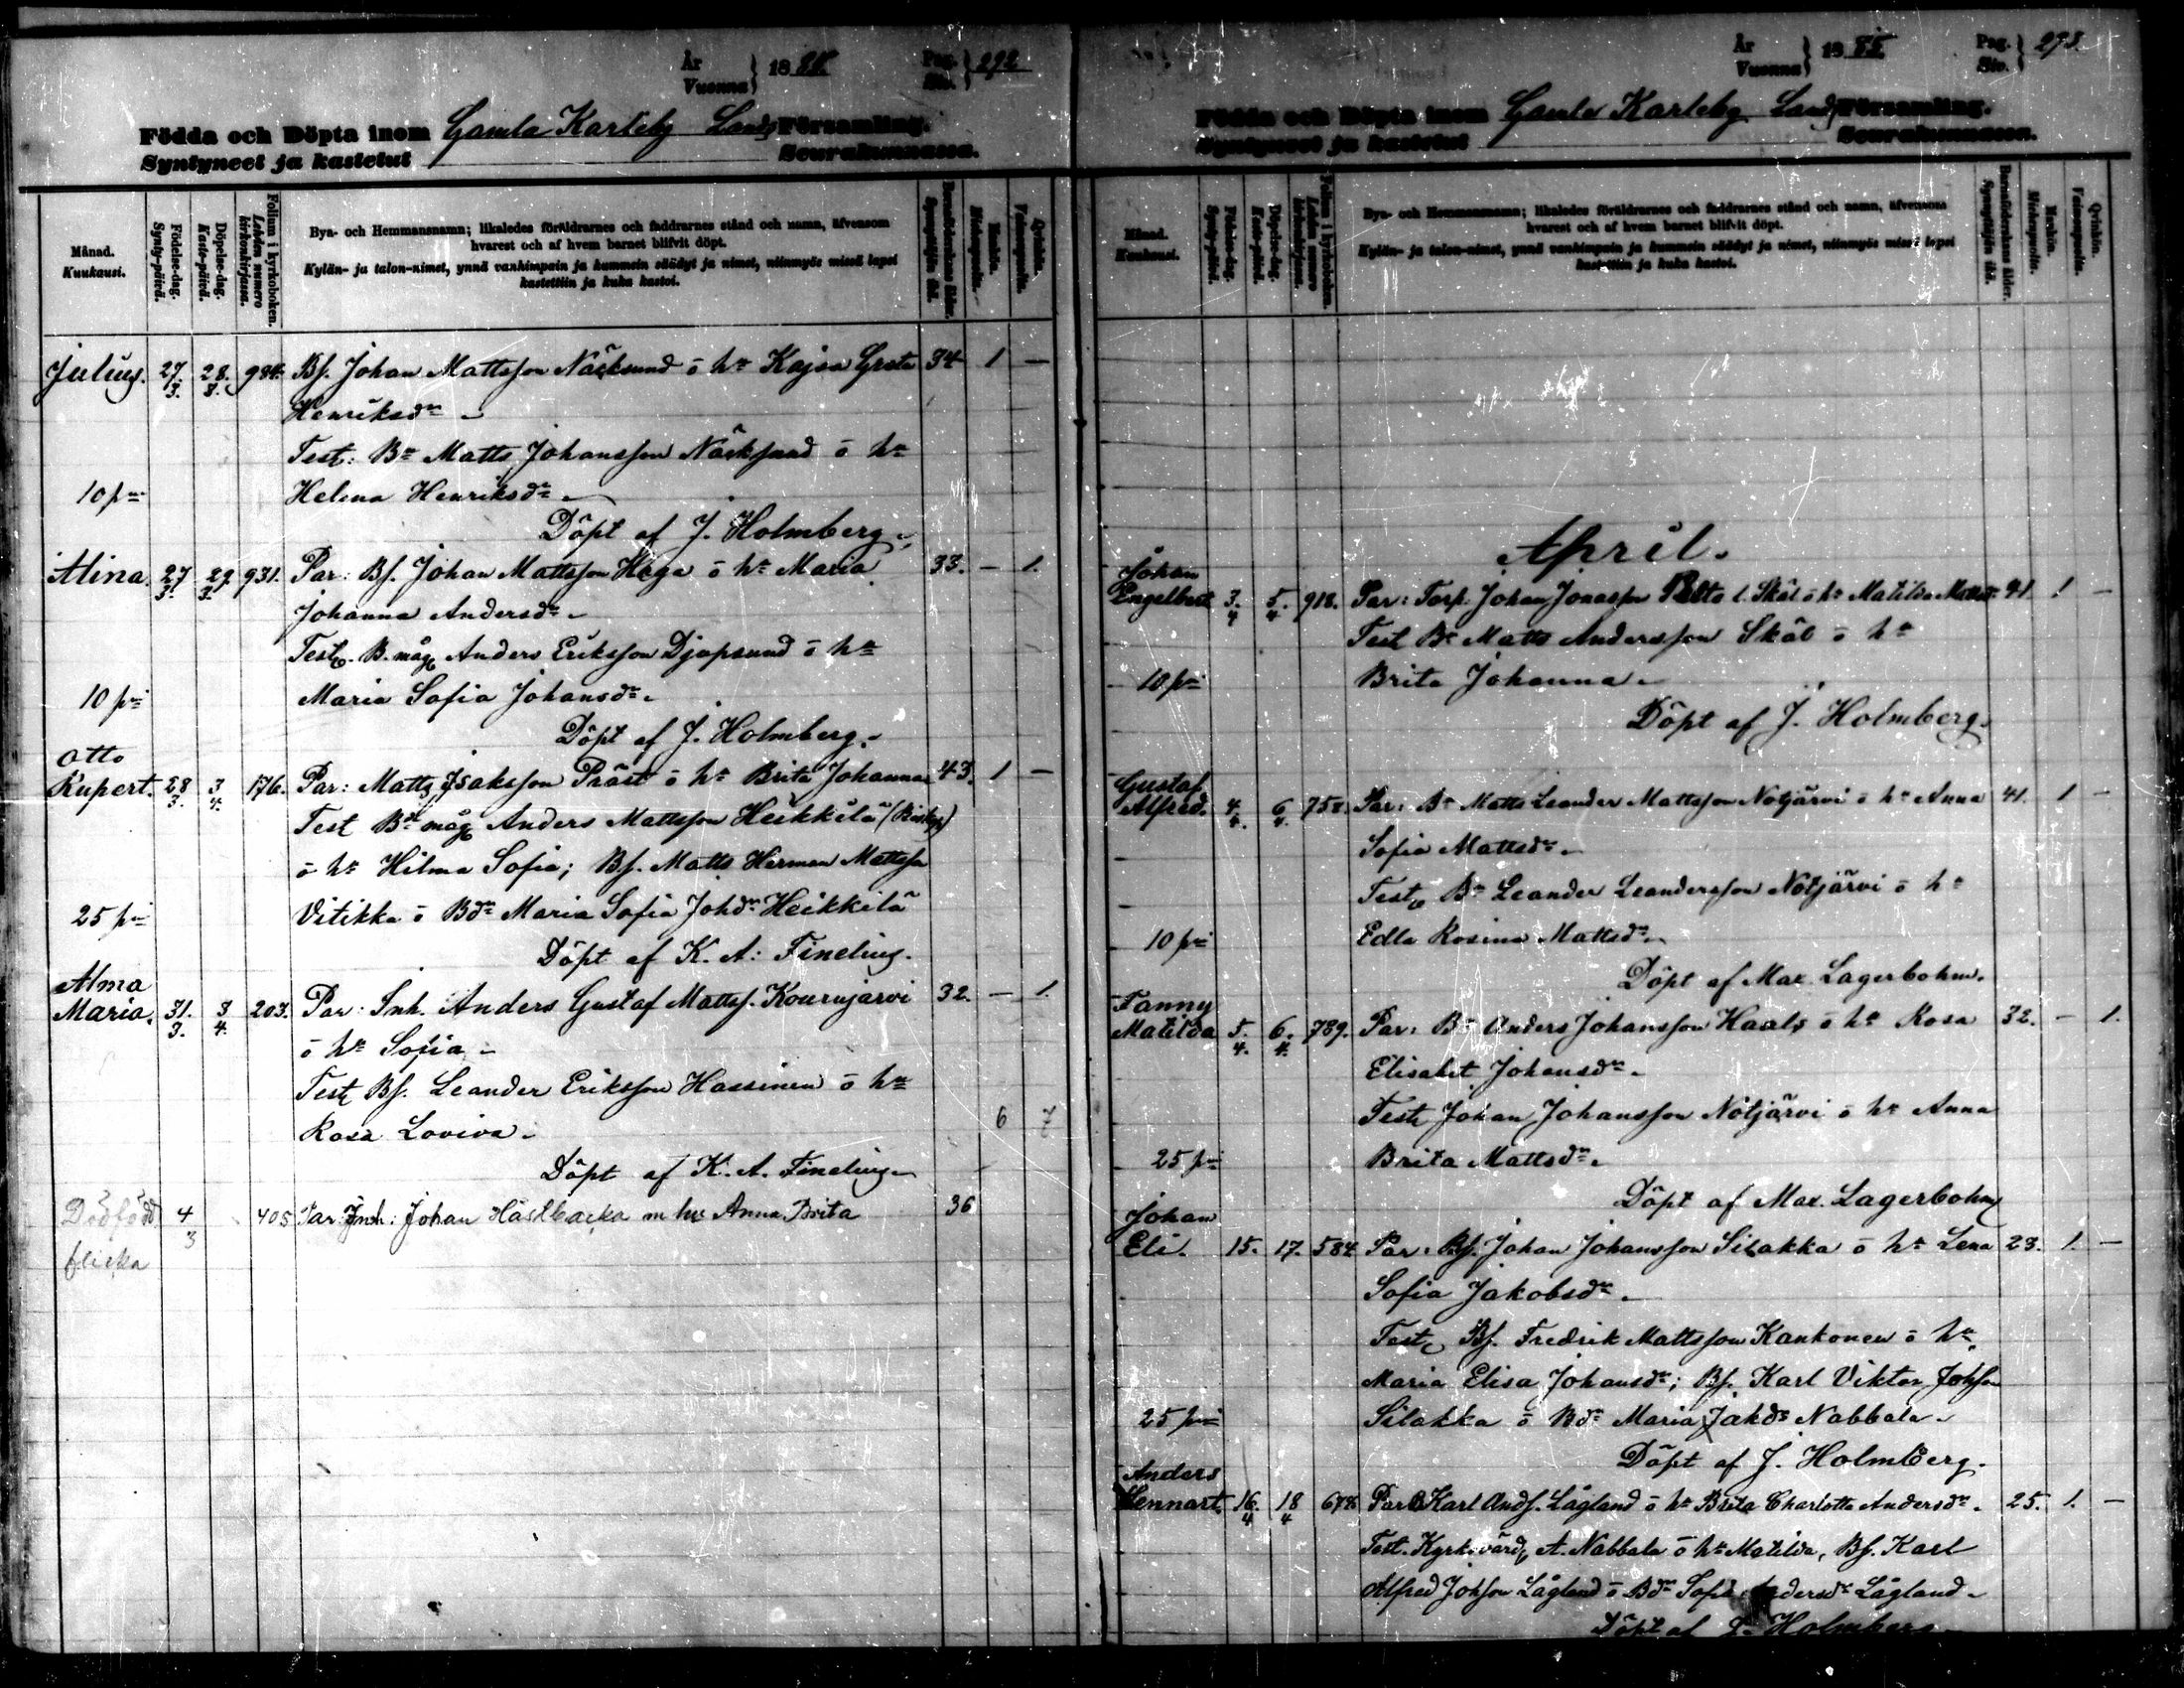 År
Vuonna } 18
Pag.
Siv. } 292
Födda och Döpta inom Gamla Karleby Lands Församling.
Syntyneet ja kastetut Seurakunnassa.
Månad. Kuukausi.
Födelse-dag. Synty-päivä.
Döpelse-dag. Kaste-päivä.
Folium i kyrkoboken. Lehden numero kirkonkirjassa.
Bya- och Hemmansnamn; likaledes föräldrarnes och faddrarnes stånd och namn, äfvensom
hvarest och af hvem barnet blifvit döpt.
Kylän- ja talon-nimet, ynnä vanhimpain ja kummein säädyt ja nimet, niinmyös missä lapsi
kastettiin ja kuka kastoi.
Barnaföderskans ålder. Synnyttäjän ikä.
Mankön. Miehenpuolia.
Qvinkön. Vaimonpuolia.
Julius. 27/3. 28/3. 984. Bs. Johan Mattsson Näcksund o hu Kajsa Greta 34 1 —
Henriksdr
Test: Bn Matts Johansson Näcksund o hu
10 pi Helena Henriksdr
Döpt af J. Holmberg
Alina. 27/3. 29/3. 931. Par: Bs. Johan Mattsson Haga o hu Maria 33. — 1.
Johanna Andersdr
Test. B. måg Anders Eriksson Djupsund o hu
10 pi Maria Sofia Johansdr
Döpt af J. Holmberg.
Otto
Rupert. 28/3. 3/4. 176. Par: Matts Isaksson Präst o hu Brita Johanna 43. 1 —
Test Bn måg Anders Mattsson Heikkilä (Biskop)
o hu Hilma Sofia; Bs. Matts Herman Mattsson
25 pi Vitikka o Bdr Maria Sofia Johdr Heikkilä
Döpt af K. A. Finelius.
Alma
Maria. 31/3. 3/4. 203. Par: Inh. Anders Gustaf Matts. Kourujärvi 32. — 1.
o hu Sofia
Test Bs. Leander Eriksson Hassinen o hu
Rosa Loviva 6 7
Döpt af K. A. Finelius
Dödfödd 4/3 405 Par Inh: Johan Hästbacka m hu Anna Brita 36
flicka
År
Vuonna } 1885
Pag.
Siv. } 293.
Födda och Döpta inom Gamla Karleby Lands Församling.
Syntyneet ja kastetut Seurakunnassa.
Månad. Kuukausi.
Födelse-dag. Synty-päivä.
Döpelse-dag. Kaste-päivä.
Folium i kyrkoboken. Lehden numero kirkonkirjassa.
Bya- och Hemmansnamn; likaledes föräldrarnes och faddrarnes stånd och namn, äfvensom
hvarest och af hvem barnet blifvit döpt.
Kylän- ja talon-nimet, ynnä vanhimpain ja kummein säädyt ja nimet, niinmyös missä lapsi
kastettiin ja kuka kastoi.
Barnaföderskans ålder. Synnyttäjän ikä.
Mankön. Miehenpuolia.
Qvinkön. Vaimonpuolia.
April.
Johan
Engelbert 3/4 5/4 918. Par: Torp. Johan Jonasson l. Skål o hu Matilda 41 1 —
Test Bn Matts Andersson Skål o hu
10 pi Brita Johanna
Döpt af J. Holmberg.
Gustaf
Alfred. 4/4. 6/4. 758. Par: Bn Matts Leander Mattsson Nötjärvi o hu Anna 41. 1 —
Sofia Mattsdr
Test Bn Leander Leandersson Nötjärvi o hu
10 pi Edla Rosina Mattsdr
Döpt af Max. Lagerbohm.
Fanny
Matilda 5/4. 6/4. 789. Par: Bn Anders Johansson Haals o hu Rosa 32. — 1.
Elisabet Johansdr
Test Johan Johansson Nötjärvi o hu Anna
25 pi Brita Mattsdr
Döpt af Max. Lagerbohm
Johan
Eli. 15. 17. 584. Par: Bs. Johan Johansson Silakka o hu Lena 23. 1. —
Sofia Jakobsdr
Test Bs. Fredrik Mattsson Kankonen o hu
Maria Elisa Johansdr; Bs. Karl Viktor Johsson
25 pi Silakka o Bdr Maria Jakdr Nabbala
Döpt af J. Holmberg.
Anders
Lennart. 16/4 18/4 Par B Karl Ands. Lågland o hu Brita Charlotta Andersdr. 25. 1. —
Test. Kyrkovärd A. Nabbala o hu Matilda, Bs. Karl
Alfred Johsson Lågland o Bdr Sofia Andersdr Lågland
Döpt af J. Holmberg